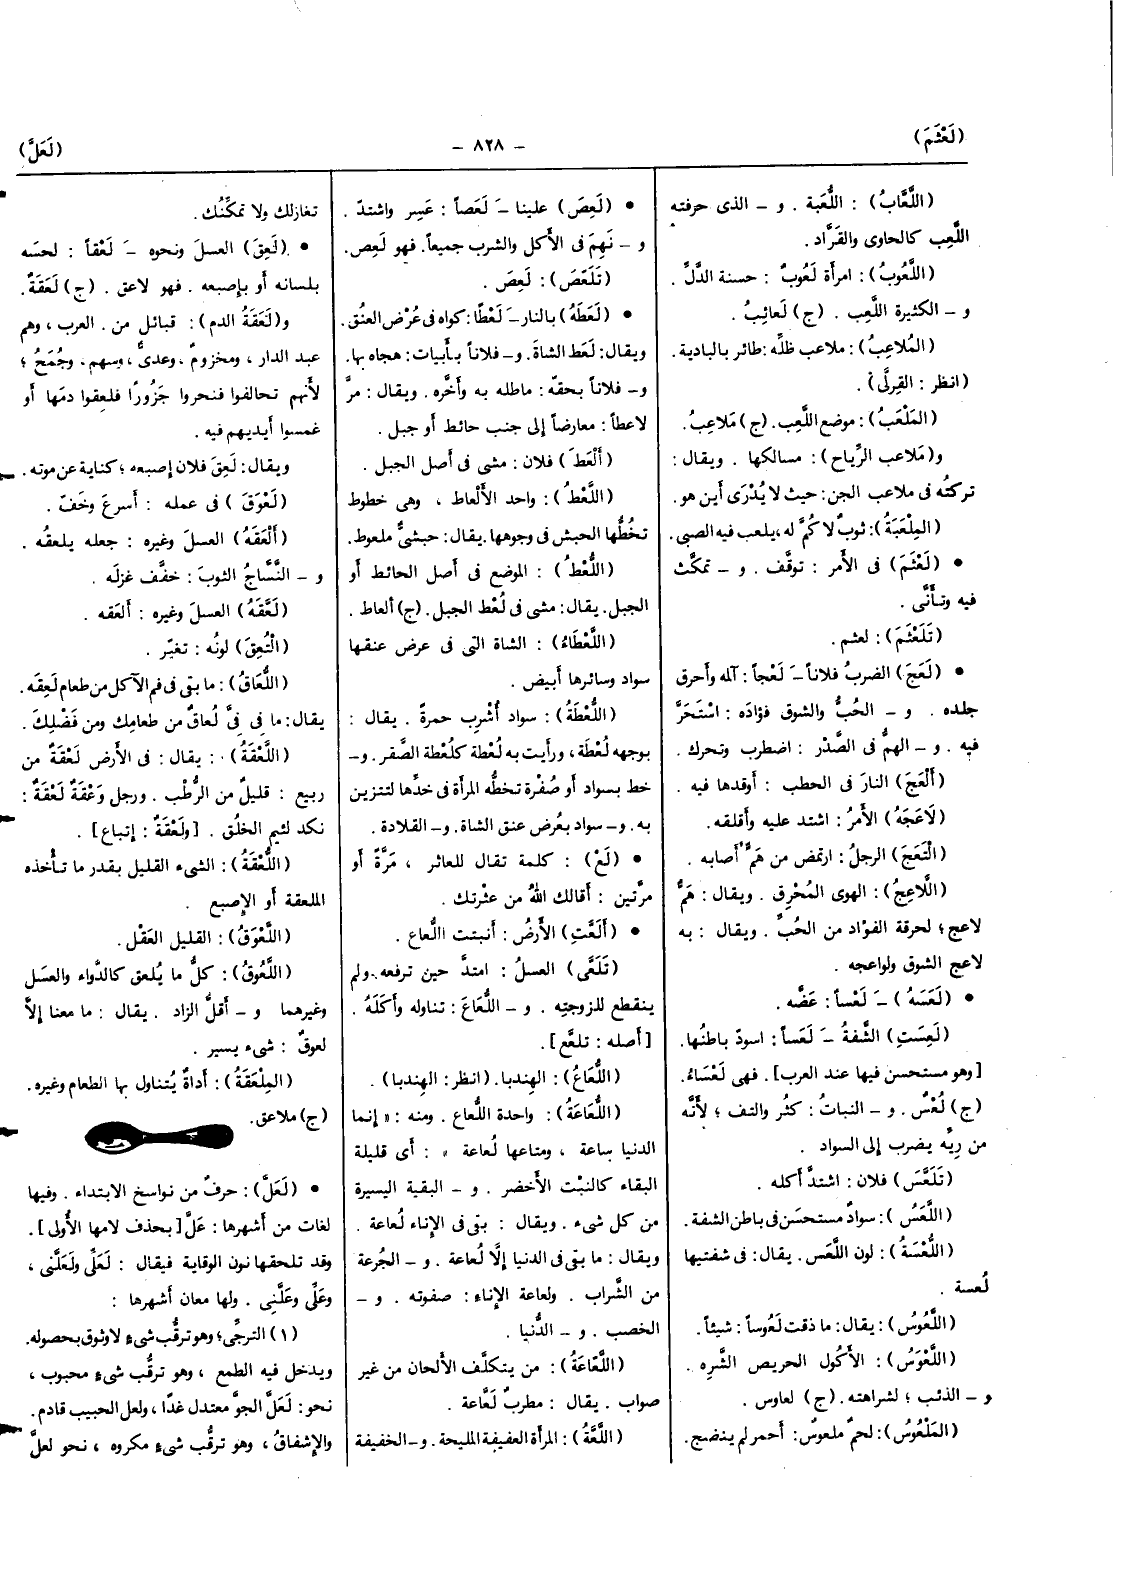 (لَعْثَمَ)
– ٨٢٨ –
(لَعَلَّ)
(اللَّعَّابُ) : اللُّعَبة . و – الذى حرفته
اللَّعِب كالحاوى والقَرَّاد .
(اللَّعُوبُ) : امرأة لَعُوبٌ : حسنة الدَّلِّ .
و – الكثيرة اللَّعِب . (ج) لَعائِبُ .
(المُلاعِبُ) : ملاعب ظلِّه : طائر بالبادية .
(انظر : القِرلَّى) .
(المَلْعَبُ) : موضع اللَّعِب . (ج) مَلاعِبُ .
و(مَلاعب الرِّياح) : مسالكها . ويقال :
تركتُه فى ملاعب الجن : حيث لا يُدْرَى أين هو .
(المِلْعَبَةُ) : ثوبٌ لا كُمَّ له ، يلعب فيه الصبى .
• (لَعْثَمَ) فى الأمر : توقَّف . و – تمكَّث
فيه وتأَنَّى .
(تَلَعْثَمَ) : لعثم .
• (لَعَجَ) الضربُ فلاناً –َ لَعْجاً : آلمه وأحرق
جلده . و – الحُبُّ والشوق فؤادَه : اسْتَحَرَّ
فيه . و – الهمُّ فى الصَّدْر : اضطرب وتحرك .
(أَلْعَجَ) النارَ فى الحطب : أوقدها فيه .
(لَاعَجَهُ) الأمرُ : اشتد عليه وأقلقه .
(الْتَعَجَ) الرجلُ : ارتمض من هَمٍّ أصابه .
(اللَّاعِجُ) : الهوى المُحْرِق . ويقال : هَمٌّ
لاعج ؛ لحرقة الفؤاد من الحُبِّ . ويقال : به
لاعج الشوق ولواعجه .
• (لَعَسَهُ) –َ لَعْساً : عَضَّه .
(لَعِسَتِ) الشَّفةُ –َ لَعَساً : اسودّ باطنُها .
[وهو مستحسن فيها عند العرب] . فهى لَعْسَاءُ .
(ج) لُعْسٌ . و – النباتُ : كثُر والتف ؛ لأَنَّه
من رِيِّه يضرب إلى السواد .
(تَلَعَّسَ) فلان : اشتدَّ أكله .
(اللَّعَسُ) : سوادٌ مستحسَن فى باطن الشفة .
(اللُّعْسَةُ) : لون اللَّعَس . يقال : فى شفتيها
لُعسة .
(اللَّعُوسُ) : يقال : ما ذقت لَعُوساً : شيئاً .
(اللَّعْوَسُ) : الأكول الحريص الشَّرِه .
و – الذئب ؛ لشراهته . (ج) لعاوس .
(المَلْعُوسُ) : لحمٌ ملعوسٌ : أحمر لم ينضج .
• (لَعِصَ) علينا –َ لَعَصاً : عَسِر واشتدّ .
و – نَهِمَ فى الأكل والشرب جميعاً . فهو لَعِص .
(تَلَعَّصَ) : لَعِصَ .
• (لَعَطَهُ) بالنار –َ لَعْطًا : كواه فى عُرْض العنُق .
ويقال : لَعَط الشاةَ . و– فلاناً بأَبيات : هجاه بها .
و– فلاناً بحقّه : ماطله به وأخَّره . ويقال : مرَّ
لاعطاً : معارضاً إلى جنب حائط أو جبل .
(أَلْعَطَ) فلان : مشى فى أصل الجبل .
(اللَّعْطُ) : واحد الأَلْعاط ، وهى خطوط
تخُطُّها الحبش فى وجوهها . يقال : حبشىٌّ ملعوط .
(اللُّعْطُ) : الموضع فى أصل الحائط أو
الجبل . يقال : مشى فى لُعْط الجبل . (ج) ألعاط .
(اللَّعْطَاءُ) : الشاة التى فى عرض عنقها
سواد وسائرها أبيض .
(اللُّعْطَةُ) : سواد أُشْرِب حمرةً . يقال :
بوجهه لُعْطَة ، ورأيت به لُعْطة كلُعْطة الصَّقر . و–
خط بسواد أو صُفْرة تخطُّه المرأة فى خدِّها لتتزين
به . و– سواد بعُرض عنق الشاة . و– القلادة .
• (لَعْ) : كلمة تقال للعاثر ، مَرَّةً أو
مرَّتين : أقالك اللهُ من عثْرتك .
• (أَلَعَّتِ) الأرضُ : أنبتت اللُّعاع .
(تَلَعَّى) العسلُ : امتدَّ حين ترفعه . ولم
ينقطع للزوجته . و – اللُّعَاعَ : تناوله وأكَلَهُ .
[أصله : تلعَّع] .
(اللُّعَاعُ) : الهِندبا . (انظر : الهِندبا) .
(اللُّعَاعَةُ) : واحدة اللُّعاع . ومنه : « إنما
الدنيا ساعة ، ومتاعها لُعاعة » : أى قليلة
البقاء كالنبْت الأخضر . و – البقية اليسيرة
من كل شىء . ويقال : بقى فى الإناء لُعاعة .
ويقال : ما بقى فى الدنيا إلَّا لُعاعة . و – الجُرعة
من الشَّراب . ولعاعة الإناء : صفوته . و –
الخصب . و – الدُّنيا .
(اللَّعَّاعَةُ) : من يتكلَّف الألحان من غير
صواب . يقال : مطربٌ لَعَّاعة .
(اللَّعَّةُ) : المرأة العفيفة المليحة . و– الخفيفة
تغازلك ولا تمكِّنُك .
• (لَعِقَ) العسلَ ونحوه –َ لَعْقاً : لحسَه
بلسانه أو بإصبعه . فهو لاعق . (ج) لَعَقَةٌ .
و(لَعَقَةُ الدم) : قبائل من العرب ، وهم
عبد الدار ، ومخزوم ، وعدىّ ، وسهم ، وجُمَحُ ؛
لأنهم تحالفوا فنحروا جَزُورًا فلعِقوا دمَها أو
غمسوا أيديهم فيه .
ويقال : لَعِقَ فلان إصبعه ؛ كناية عن موته .
(لَعْوَقَ) فى عمله : أسرعَ وخَفّ .
(أَلْعَقَهُ) العسلَ وغيره : جعله يلعقُه .
و – النَّسَّاجُ الثوبَ : خفَّف غزلَه .
(لَعَّقَهُ) العسلَ وغيره : ألعَقه .
(الْتُعِقَ) لونُه : تغيّر .
(اللُّعَاقُ) : ما بقى فى فم الآكل من طعام لَعِقَه .
يقال : ما فى فىَّ لُعاقٌ من طعامِك ومن فَضْلِكَ .
(اللَّعْقَةُ) : يقال : فى الأرض لَعْقَةٌ من
ربيع : قليلٌ من الرُّطْب . ورجل وَعْقَةٌ لَعْقَةٌ :
نكد لئيم الخلُق . [ولَعْقَةٌ : إتباع] .
(اللُّعْقَةُ) : الشىء القليل بقدر ما تأخذه
الملعقة أو الإصبع .
(اللَّعْوَقُ) : القليل العَقْل .
(اللَّعُوقُ) : كلُّ ما يُلعق كالدَّواء والعسَل
وغيرهما و – أقلَّ الزاد . يقال : ما معنا إلاَّ
لعوقٌ : شىء يسير .
(المِلعَقَةُ) : أداةٌ يُتناول بها الطعام وغيره .
(ج) ملاعق .
• (لَعَلَّ) : حرفٌ من نواسخ الابتداء . وفيها
لغات من أشهرها : عَلَّ [بحذف لامها الأُولى] .
وقد تلحقها نون الوقاية فيقال : لَعَلِّى ولَعَلَّنى ،
وعَلِّى وعَلَّنِى . ولها معان أشهرها :
(١) الترجِّى ؛ وهو ترقُّب شىءٍ لا وثوق بحصوله .
ويدخل فيه الطمع ، وهو ترقُّب شىءٍ محبوب ،
نحو : لَعَلَّ الجوَّ معتدل غدًا ، ولعل الحبيب قادم .
والإشفاقُ ، وهو ترقُّب شىءٍ مكروه ، نحو لعلَّ